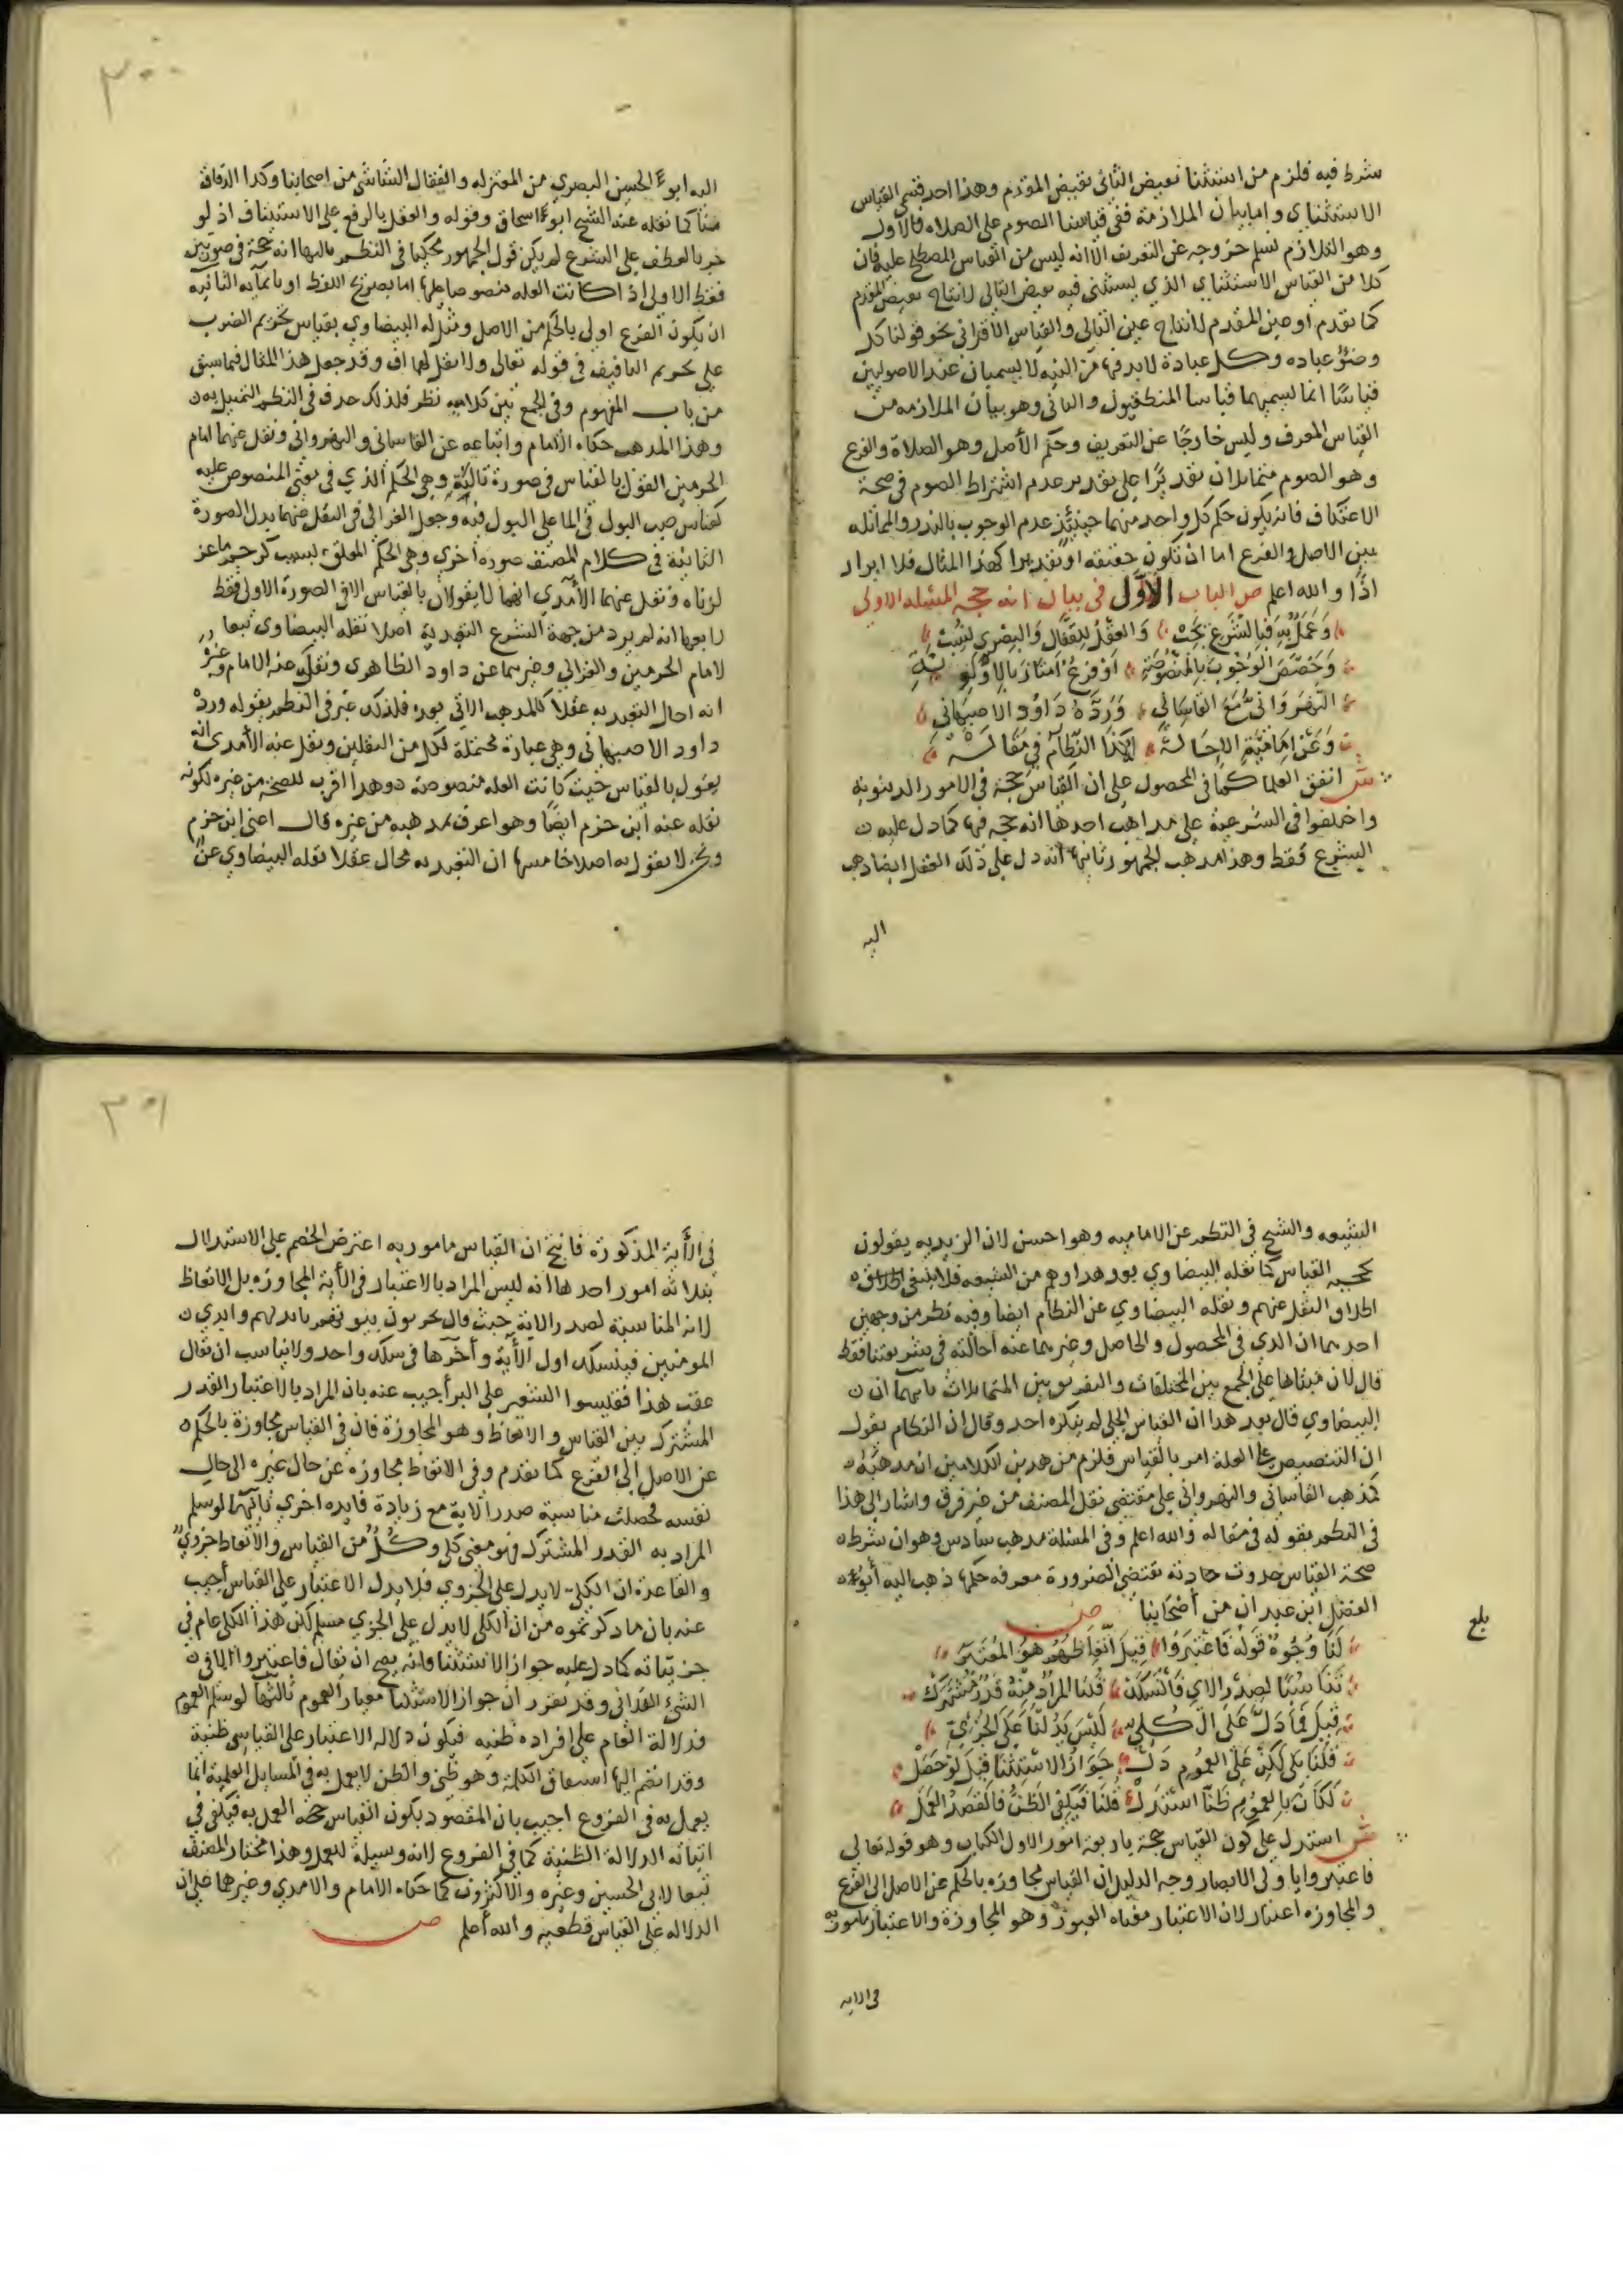 شرط فيه فلزم من استثنا نقيض الثاني نقيض المقدم وهذا احد قسمي القياس
الاستثناي واما بيان الملازمة ففي قياسنا الصوم على الصلاه فالاول
وهو التلازم نسلم خروجه عن التعريف الا انه ليس من القياس المصطلح عليه فان
كلا من القياس الاستثناي الذي يستثنى فيه نقيض التالي لانتاج نقيض المقدم
كما تقدم او عين المقدم لانتاج عين التالي والقياس الاقتراني نحو قولنا كل
وضوء عباده وكل عبادة لابد فيها من النيه لا يسميان عند الاصوليين
قياسًا انما يسميهما قياسا المنطقيون والثاني وهو بيان الملازمه من
القياس المعرف وليس خارجًا عن التعريف وحكم الأصل وهو الصلاة والفرع
وهو الصوم متماثلان تقديرًا على تقدير عدم اشتراط الصوم في صحة
الاعتكاف فانه يكون حكم كل واحد منهما حينئذٍ عدم الوجوب بالنذر والمماثله
بين الاصل والفرع اما ان تكون حقيقه او تقديرا كهذا المثال فلا ايراد
اذًا والله اعلم ص الباب الأوّل في بيان انه حجه المسئله الاولى
وَعَمَلٌ بِهِ فَبِالشَّرْعِ يَجِبْ وَالعَقْلُ لِلقَفَّالِ وَالبِصْرِي نُسِبْ
وَخَصَّصَ الوُجُوبَ بِالمَنْصُوصَةِ اَوْ فَرْعٌ امتَازَ بِالاَوْلَوِيَّةِ
النَّهرَوَانِي مَعَ القَاسَانِي وَرَدَّهُ دَاوُد الاصبِهَانِي
وَعَنْ اِمَامِيَّةٍ الاِحَالَهْ كَذَا النَّظَّام فِي مَقَالَهْ
ش اتفق العلما كما في المحصول على ان القياس حجة في الامور الدنيويه
واختلفوا في الشرعية على مذاهب احدها انه حجه فيها كما دل عليه
الشرع فقط وهذا مذهب الجمهور ثانيها انه دل على ذلك العقل ايضا ذهب
اليه
٣٠٠
اليه ابو الحسن البصري من المعتزله والقفال الشاشي من اصحابنا وكذا الدقاق
منا كما نقله عنه الشيخ ابو اسحاق وقوله والعقل بالرفع على الاستيناف اذ لو
جر بالعطف على الشرع لم يكن قول الجمهور محكيا في النظم ثالثها انه حجة في صورتين
فقط الاولى اذا كانت العله منصوصا عليها اما بصريح اللفظ او بايمآيه الثانيه
ان يكون الفرع اولى بالحكم من الاصل ومثل له البيضاوي بقياس تحريم الضرب
على تحريم التافيف في قوله تعالى ولا تقل لهما اف وقد جعل هذا المثال فيما سبق
من باب المفهوم وفي الجمع بين كلاميه نظر فلذلك حذف في النظم التمثيل به
وهذا المذهب حكاه الامام واتباعه عن القاساني والنهرواني ونقل عنهما امام
الحرمين القول بالقياس في صورة ثالثة وهي الحكم الذي في معنى المنصوص عليه
كقياس صب البول في الما على البول فيه وجعل الغزالي في النقل عنهما بدل الصورة
الثانية في كلام المصنف صوره اخرى وهي الحكم المعلق بسبب كرجم ماعز
لزناه ونقل عنهما الآمدي انهما لا يقولان بالقياس الا في الصورة الاولى فقط
رابعها انه لم يرد من جهة الشرع التعبد به اصلا نقله البيضاوي تبعا
لامام الحرمين والغزالي وغيرهما عن داود الظاهري ونقل عنه الامام وغيره
انه احال التعبد به عقلا كالمذهب الاتي بعد فلذلك عبر في النظم بقوله ورده
داود الاصبهاني وهي عبارة محتملة لكل من النقلين ونقل عنه الآمدي انه
يقول بالقياس حيث كانت العله منصوصة وهذا اقرب للصحة من غيره لكونه
نقله عنه ابن حزم ايضًا وهو اعرف بمذهبه من غيره قال اعني ابن حزم
ونحن لا نقول به اصلا خامسها ان التعبد به محال عقلا نقله البيضاوي عن
الشيعه والشيخ في النظم عن الاماميه وهو احسن لان الزيديه يقولون
بحجيه القياس كما نقله البيضاوي بعد هذا وهم من الشيعه فلا ينبغي
اطلاق النقل عنهم ونقله البيضاوي عن النظام ايضا وفيه نظر من وجهين
احدهما ان الذي في المحصول والحاصل وغيرهما عنه احالته في شريعتنا فقط
قال لان مبناها على الجمع بين المختلفات والتفريق بين المتماثلات ثانيهما ان
البيضاوي قال بعد هذا ان القياس الجلي لم ينكره احد وقال ان النظام يقول
ان التنصيص على العلة امر بالقياس فلزم من هذين الكلامين ان مذهبه
كمذهب القاساني والنهرواني على مقتضى نقل المصنف من غير فرق واشار الى هذا
في النظم بقوله في مقاله والله اعلم وفي المسئلة مذهب سادس وهو ان شرط
صحة القياس حدوث حادثة تقتضي الضرورة معرفه حكمها ذهب اليه أبو
الفضل ابن عبدان من أصحابنا ص
بلغ
لَنَا وُجُوهٌ قَولُهُ فَاعْتَبِرُوا قِيلَ اتِّعَاظُهُم هُوَ المُعتَبَرُ
تَنَاسُبًا لِصَدْرِ الاي فَانْسَلَكْ قُلنَا المُرَادُ مِنْهُ قَدْرٌ مُشْتَرَكْ
قِيلَ فَمَا دَلَّ عَلَى الكُلِّيِّ لَيْسَ يَدُلنَا عَلَى الجُزْئِيّ
قُلْنَا بَلَى لَكِنْ عَلَى العُمُومِ دَلْ جَوَازُ الاِسْتِثْنَا قِيلَ لَوْ حَصَلْ
لَكَانَ بِالعمُومِ ظَنًّا اسْتَدَلْ قُلنَا فَيَكفِي الظَّنُّ فَالقَصْدُ العَمَلْ
ش استدل على كون القياس حجة باربعة امور الاول الكتاب وهو قوله تعالى
فاعتبروا يا اولي الابصار وجه الدليل ان القياس مجاوزه بالحكم عن الاصل الى الفرع
والمجاوزه اعتبار لان الاعتبار معناه العبور وهو المجاوزة والاعتبار مامور به
في الايه
٣٠١
في الأية المذكورة فانتج ان القياس مامور به اعترض الخصم على الاستدلال
بثلاثه امور احدها انه ليس المراد بالاعتبار في الأية المجاوزه بل الاتعاظ
لانه المناسبة لصدر الاية حيث قال يخربون بيوتهم بايديهم وايدي
المومنين فينسلك اول الأية وآخرها في سلك واحد ولا يناسب ان يقال
عقب هذا فقيسوا الشعير على البر أجيب عنه بان المراد بالاعتبار القدر
المشترك بين القياس والاتعاظ وهو المجاوزة فان في القياس مجاوزة بالحكم
عن الاصل إلى الفرع كما تقدم وفي الاتعاظ مجاوزه عن حال غيره الى حال
نفسه فحصلت مناسبة صدر الاية مع زيادة فايده اخرى ثانيها لو سلم
المراد به القدر المشترك فهو معنى كلي وكُلٌّ من القياس والاتعاظ جزويٌّ
والقاعدة ان الكلي لا يدل على الجزوي فلا يدل الاعتبار على القياس أجيب
عنه بان ما ذكرتموه من ان الكلي لا يدل على الجزي مسلم لكن هذا الكلي عام في
جزيياته كما دل عليه جواز الاستثنا فانه يصح ان يقال فاعتبروا الا في
الشئ الفلاني وقد تقرر ان جواز الاستثنا معيار العموم ثالثها لو سلم العموم
فدلالة العام على افراده ظنيه فيكون دلاله الاعتبار على القياس ظنية
وقد انضم اليها اشتقاق الكلمة وهو ظني والظن لا يعمل به في المسايل العلمية انما
يعمل به في الفروع اجيب بان المقصود بكون القياس حجه العمل به فيكفي في
اثباته الدلالة الظنية كما في الفروع لانه وسيلة للعمل وهذا مختار المصنف
تبعا لابي الحسين وغيره والاكثرون كما حكاه الامام والامدي وغيرهما على ان
الدلاله على القياس قطعيه والله أعلم ص